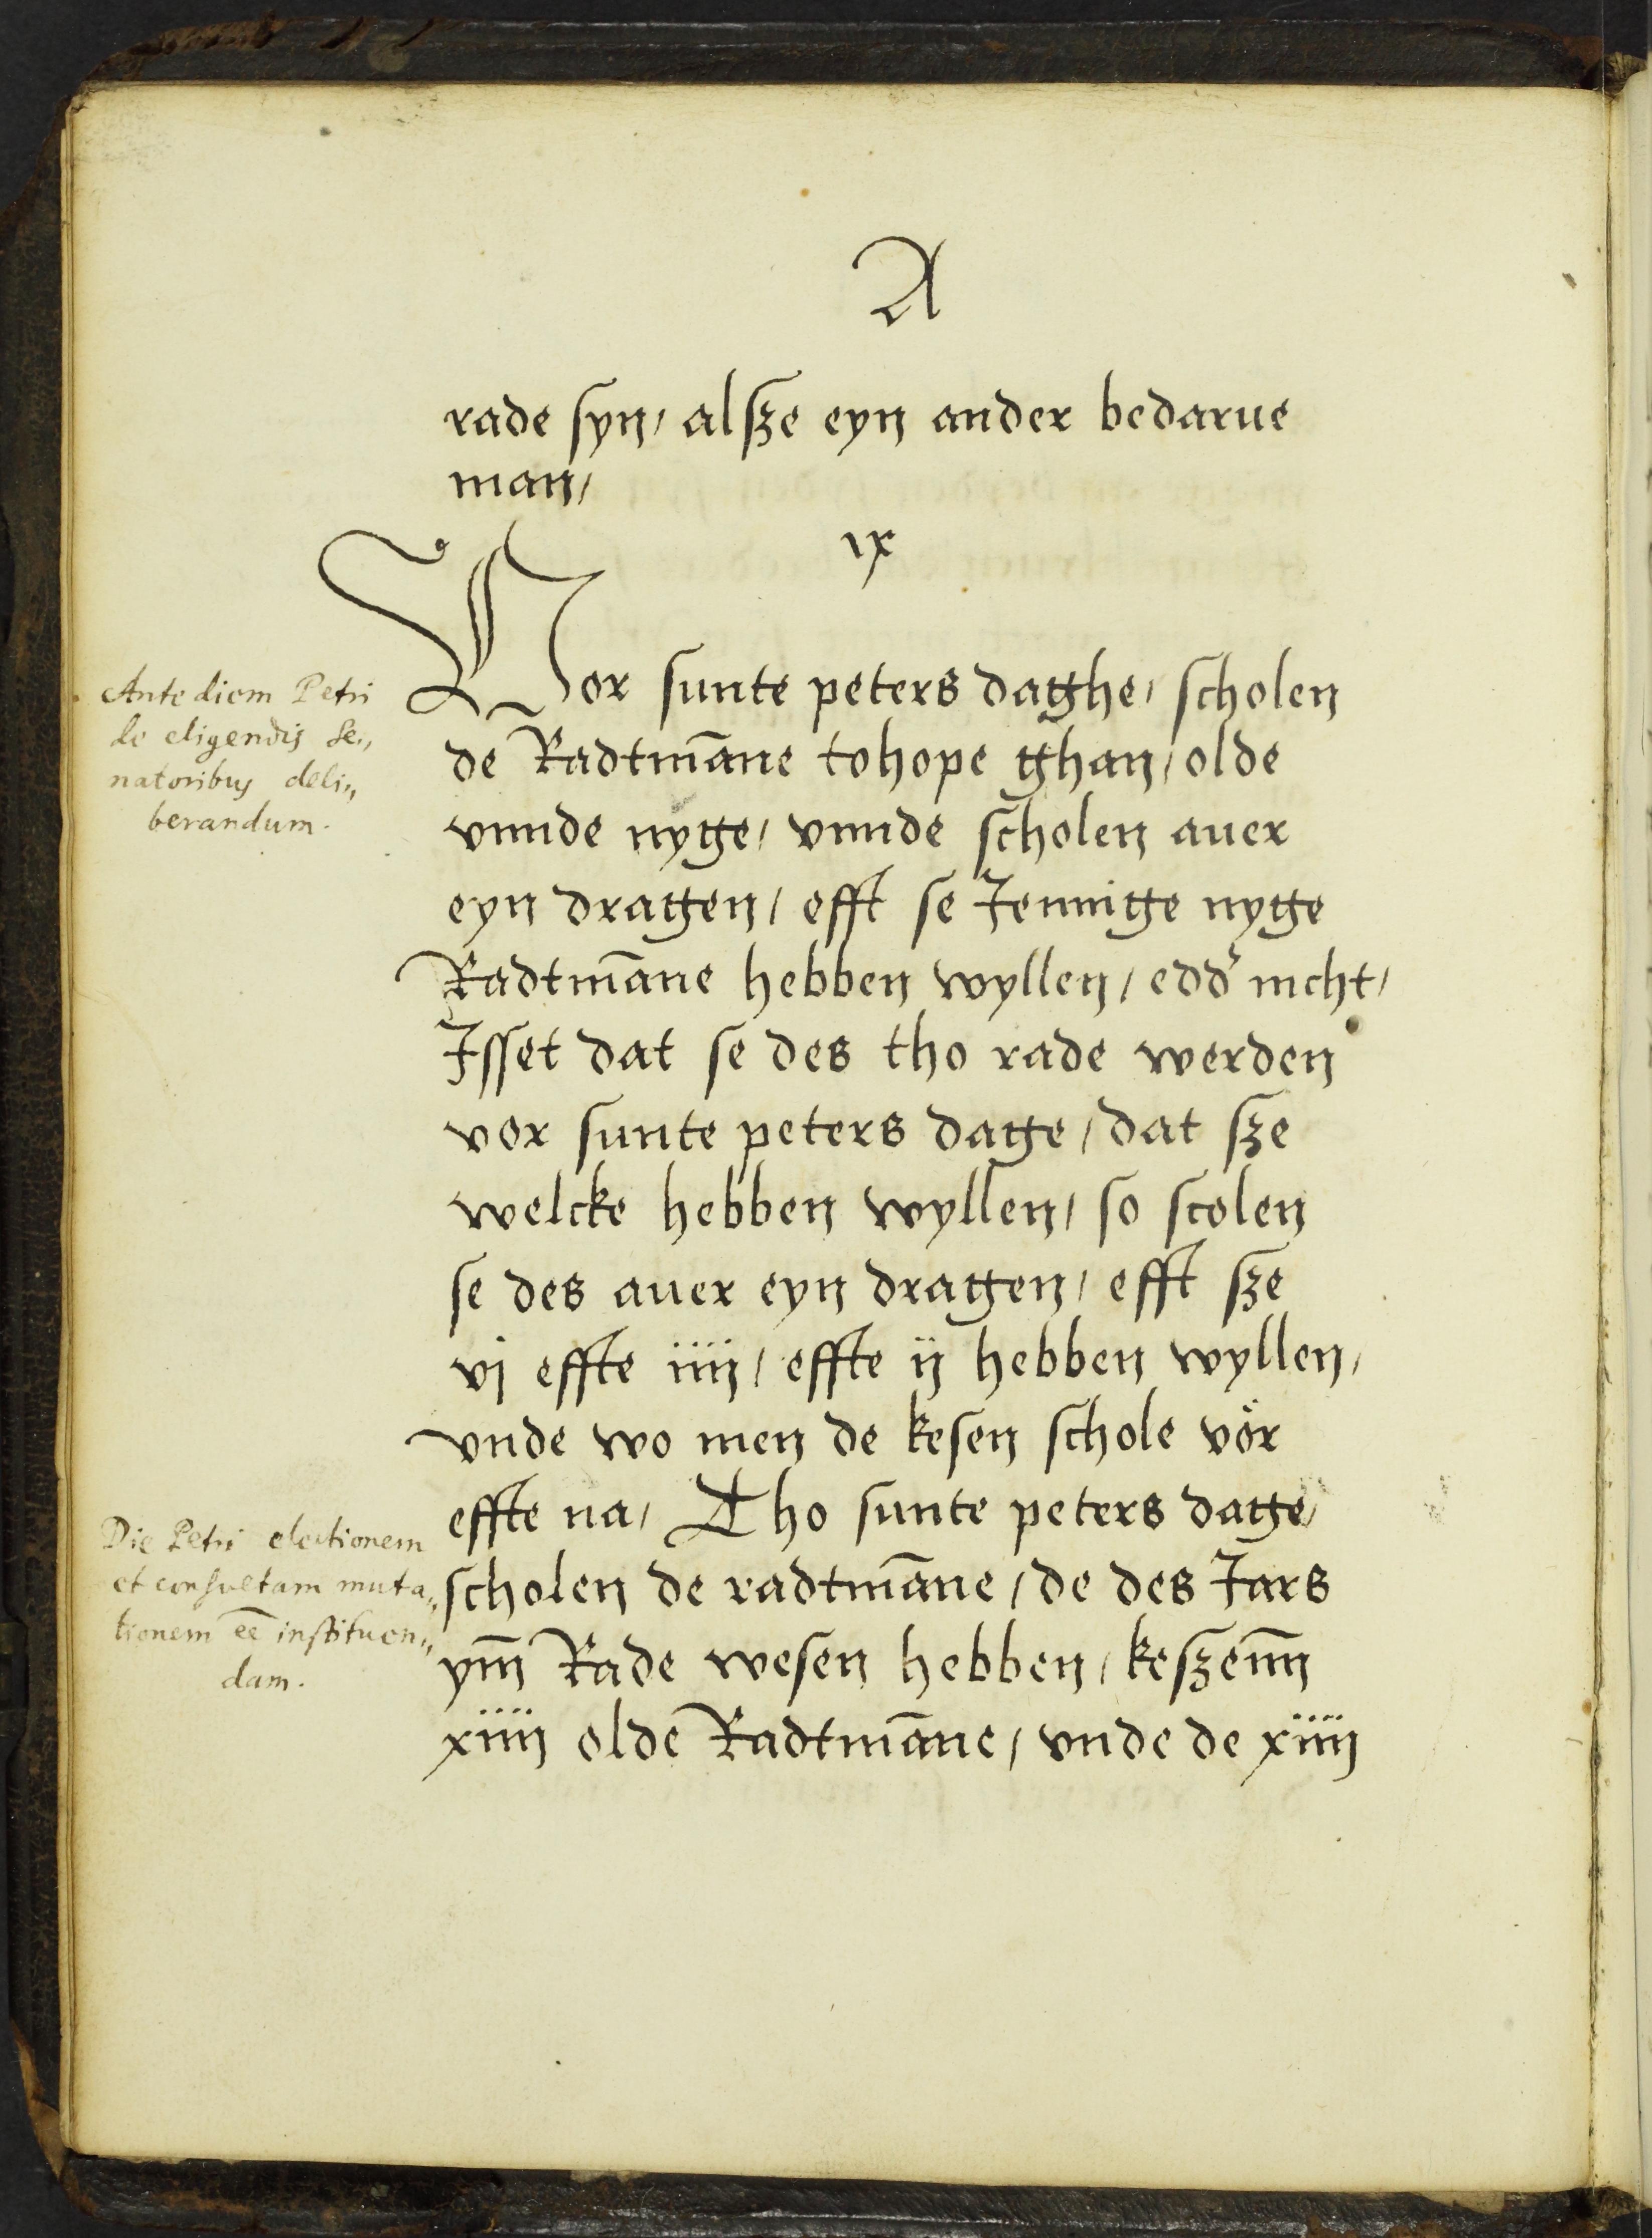 A
rade syn, alsze eyn ander bedarue
man,
ix
Vor sunte peters daghe, scholen
de Radtmāne tohope ghan, olde
vnnde nyge, vnnde scholen auer
eyn dragen, efft se Jennige nyge
Radtmāne hebben wyllen, edd' nicht,
Jsset dat se des tho rade werden
vor sunte peters dage, dat sze
welcke hebben wyllen, so scolen
se des auer eyn dragen, efft sze
vj effte iiij, effte ij hebben wyllen,
vnde wo men de kesen schole vör
effte na, Tho sunte peters dage,
scholen de radtmāne, de des Jars
ym̄ Rade wesen hebben, keszenn̄
xiiij olde Radtmāne, vnde de xiiij
Ante diem Petri
de eligendis Se„
natoribus deli„
berandum.
Die Petri electionem
et consultam muta„
tionem eē instituen„
dam.